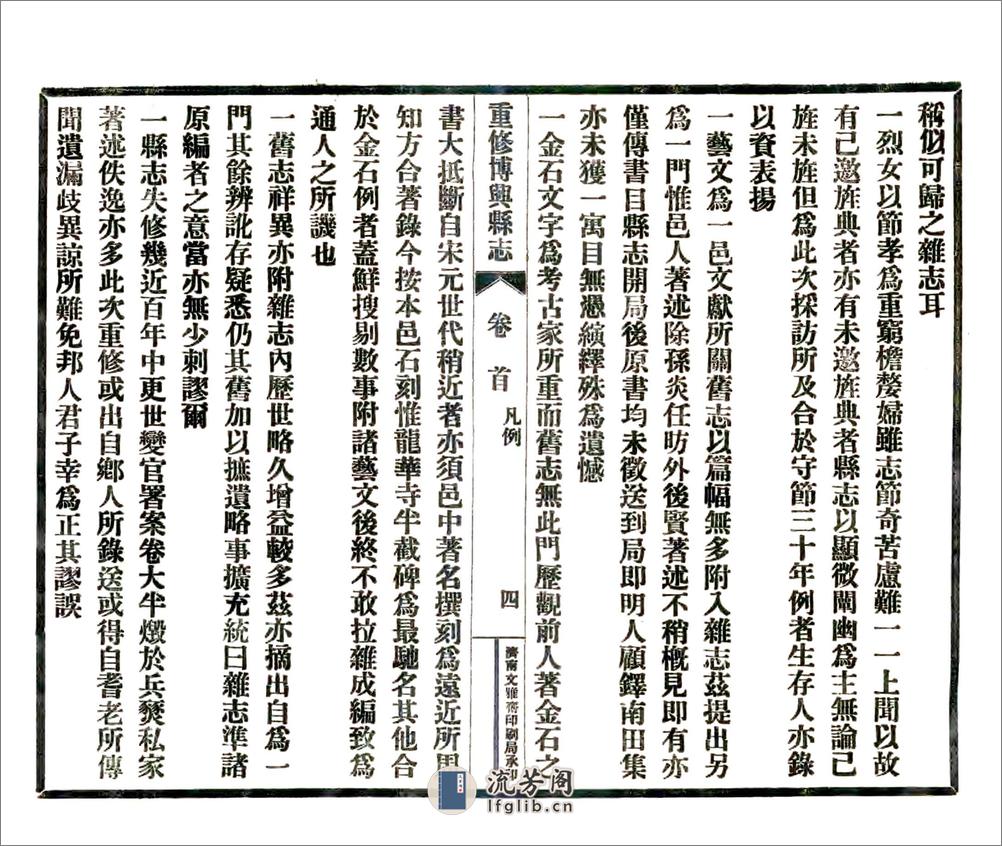 稱似可歸之雜志耳
一烈女以節孝爲重窮檐嫠婦雖志節奇苦慮難一一上聞以故
有已邀旌典者亦有未邀旌典者縣志以顯微闡幽爲主無論已
旌未旌但爲此次採訪所及合於守節三十年例者生存人亦錄
以資表揚
一藝文爲一邑文獻所關舊志以篇幅無多附入雜志茲提出另
爲一門惟邑人著述除孫炎任昉外後賢著述不稍概見即有亦
僅傳書目縣志開局後原書均未徵送到局即明人顧鐸南田集
亦未獲一寓目無憑縯繹殊爲遺憾
一金石文字爲考古家所重而舊志無此門歷觀前人著金石之
重修博興縣志
卷首
凡例
四
濟南文雅齋印刷局承印
書大抵斷自宋元世代稍近者亦須邑中著名撰刻爲遠近所周
知方合著錄今按本邑石刻惟龍華寺半截碑爲最馳名其他合
於金石例者蓋鮮搜剔數事附諸藝文後終不敢拉雜成編致爲
通人之所譏也
一舊志祥異亦附雜志內歷世略久增益較多茲亦摘出自爲一
門其餘辨訛存疑悉仍其舊加以摭遺略事擴充統曰雜志準諸
原編者之意當亦無少刺謬爾
一縣志失修幾近百年中更世變官署案卷大半燬於兵燹私家
著述佚逸亦多此次重修或出自鄉人所錄送或得自耆老所傳
聞遺漏歧異諒所難免邦人君子幸爲正其謬誤
流芳阁
lfglib.cn